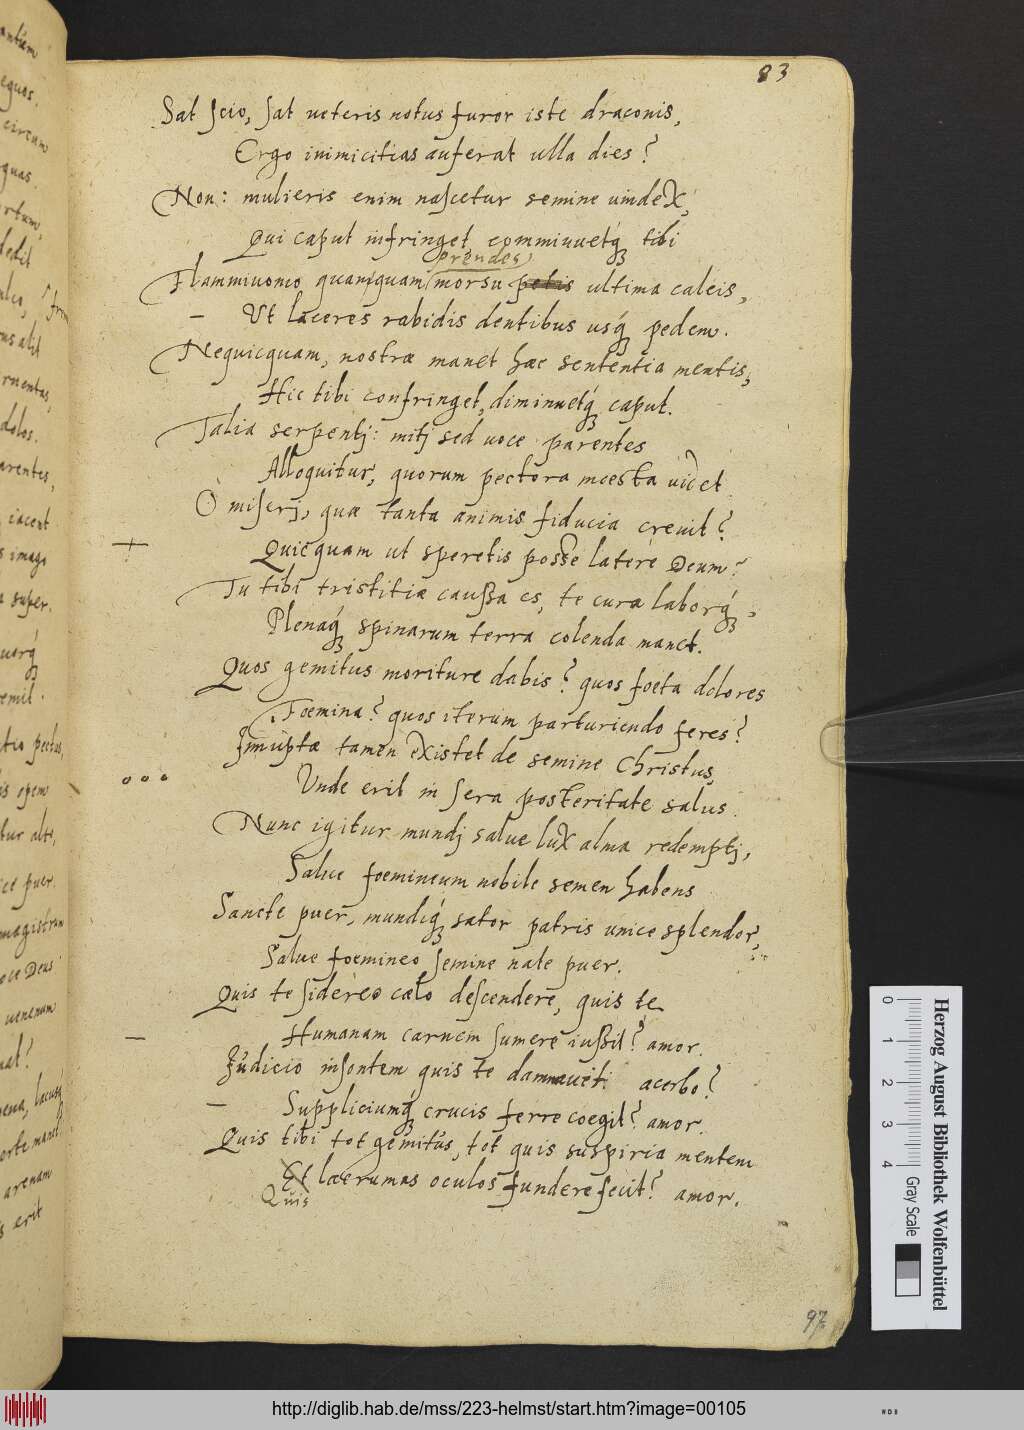 83
Sat scio, sat ueteris notus furor iste draconis,
Ergo inimicitias auferat ulla dies?
Non: mulieris enim nascetur semine uindex,
Qui caput infringet, comminuetq́ꝫ tibi
prendes
Flammiuomo quamquam morsu petis ultima calcis,
– Ut laceres rabidis dentibus usq́ꝫ pedem.
Nequicquam, nostræ manet hæc sententia mentis,
Hic tibi confringet, diminuetq́ꝫ caput.
Talia serpentj: mitj sed uoce parentes
Alloquitur, quorum pectora moesta uidet
O miserj, quæ tanta animis fiducia creuit?
Quicquam ut speretis posse latere Deum?
Tu tibi tristitiæ caußa es, te cura laborq́ꝫ,
Plenaq́ꝫ spinarum terra colenda manet.
Quos gemitus moriture dabis? quos foeta dolores
Foemina? quos iterum parturiendo feres?
Innuptæ tamen existet de semine Christus,
Unde erit in sera posteritate salus.
Nunc igitur mundj salue lux alma redemptj,
Salue foemineum nobile semen habens
Sancte puer, mundiq́ꝫ sator patris unice splendor,
Salue foemineo semine nate puer.
Quis te sidereo cælo descendere, quis te
– Humanam carnem sumere iußit? amor.
Judicio insontem quis te damnauit acerbo?
– Suppliciumq́ꝫ crucis ferre coegit? amor.
Quis tibi tot gemitus, tot quis suspiria mentem
Et lacrumas oculos fundere fecit? amor.
Quis
97
antum
equos.
circum
quas.
ortum,
dedit
ns alit
dolos.
arentes,
iacent
s imago
a super.
uorq́ꝫ
emit.
tio pectus,
is opem
tur alte,
ice puer
magistrum
oce Deus
uenenum
arenam
s erit
Herzog August Bibliothek Wolfenbüttel
0 1 2 3 4
Gray Scale
http://diglib.hab.de/mss/223-helmst/start.htm?image=00105